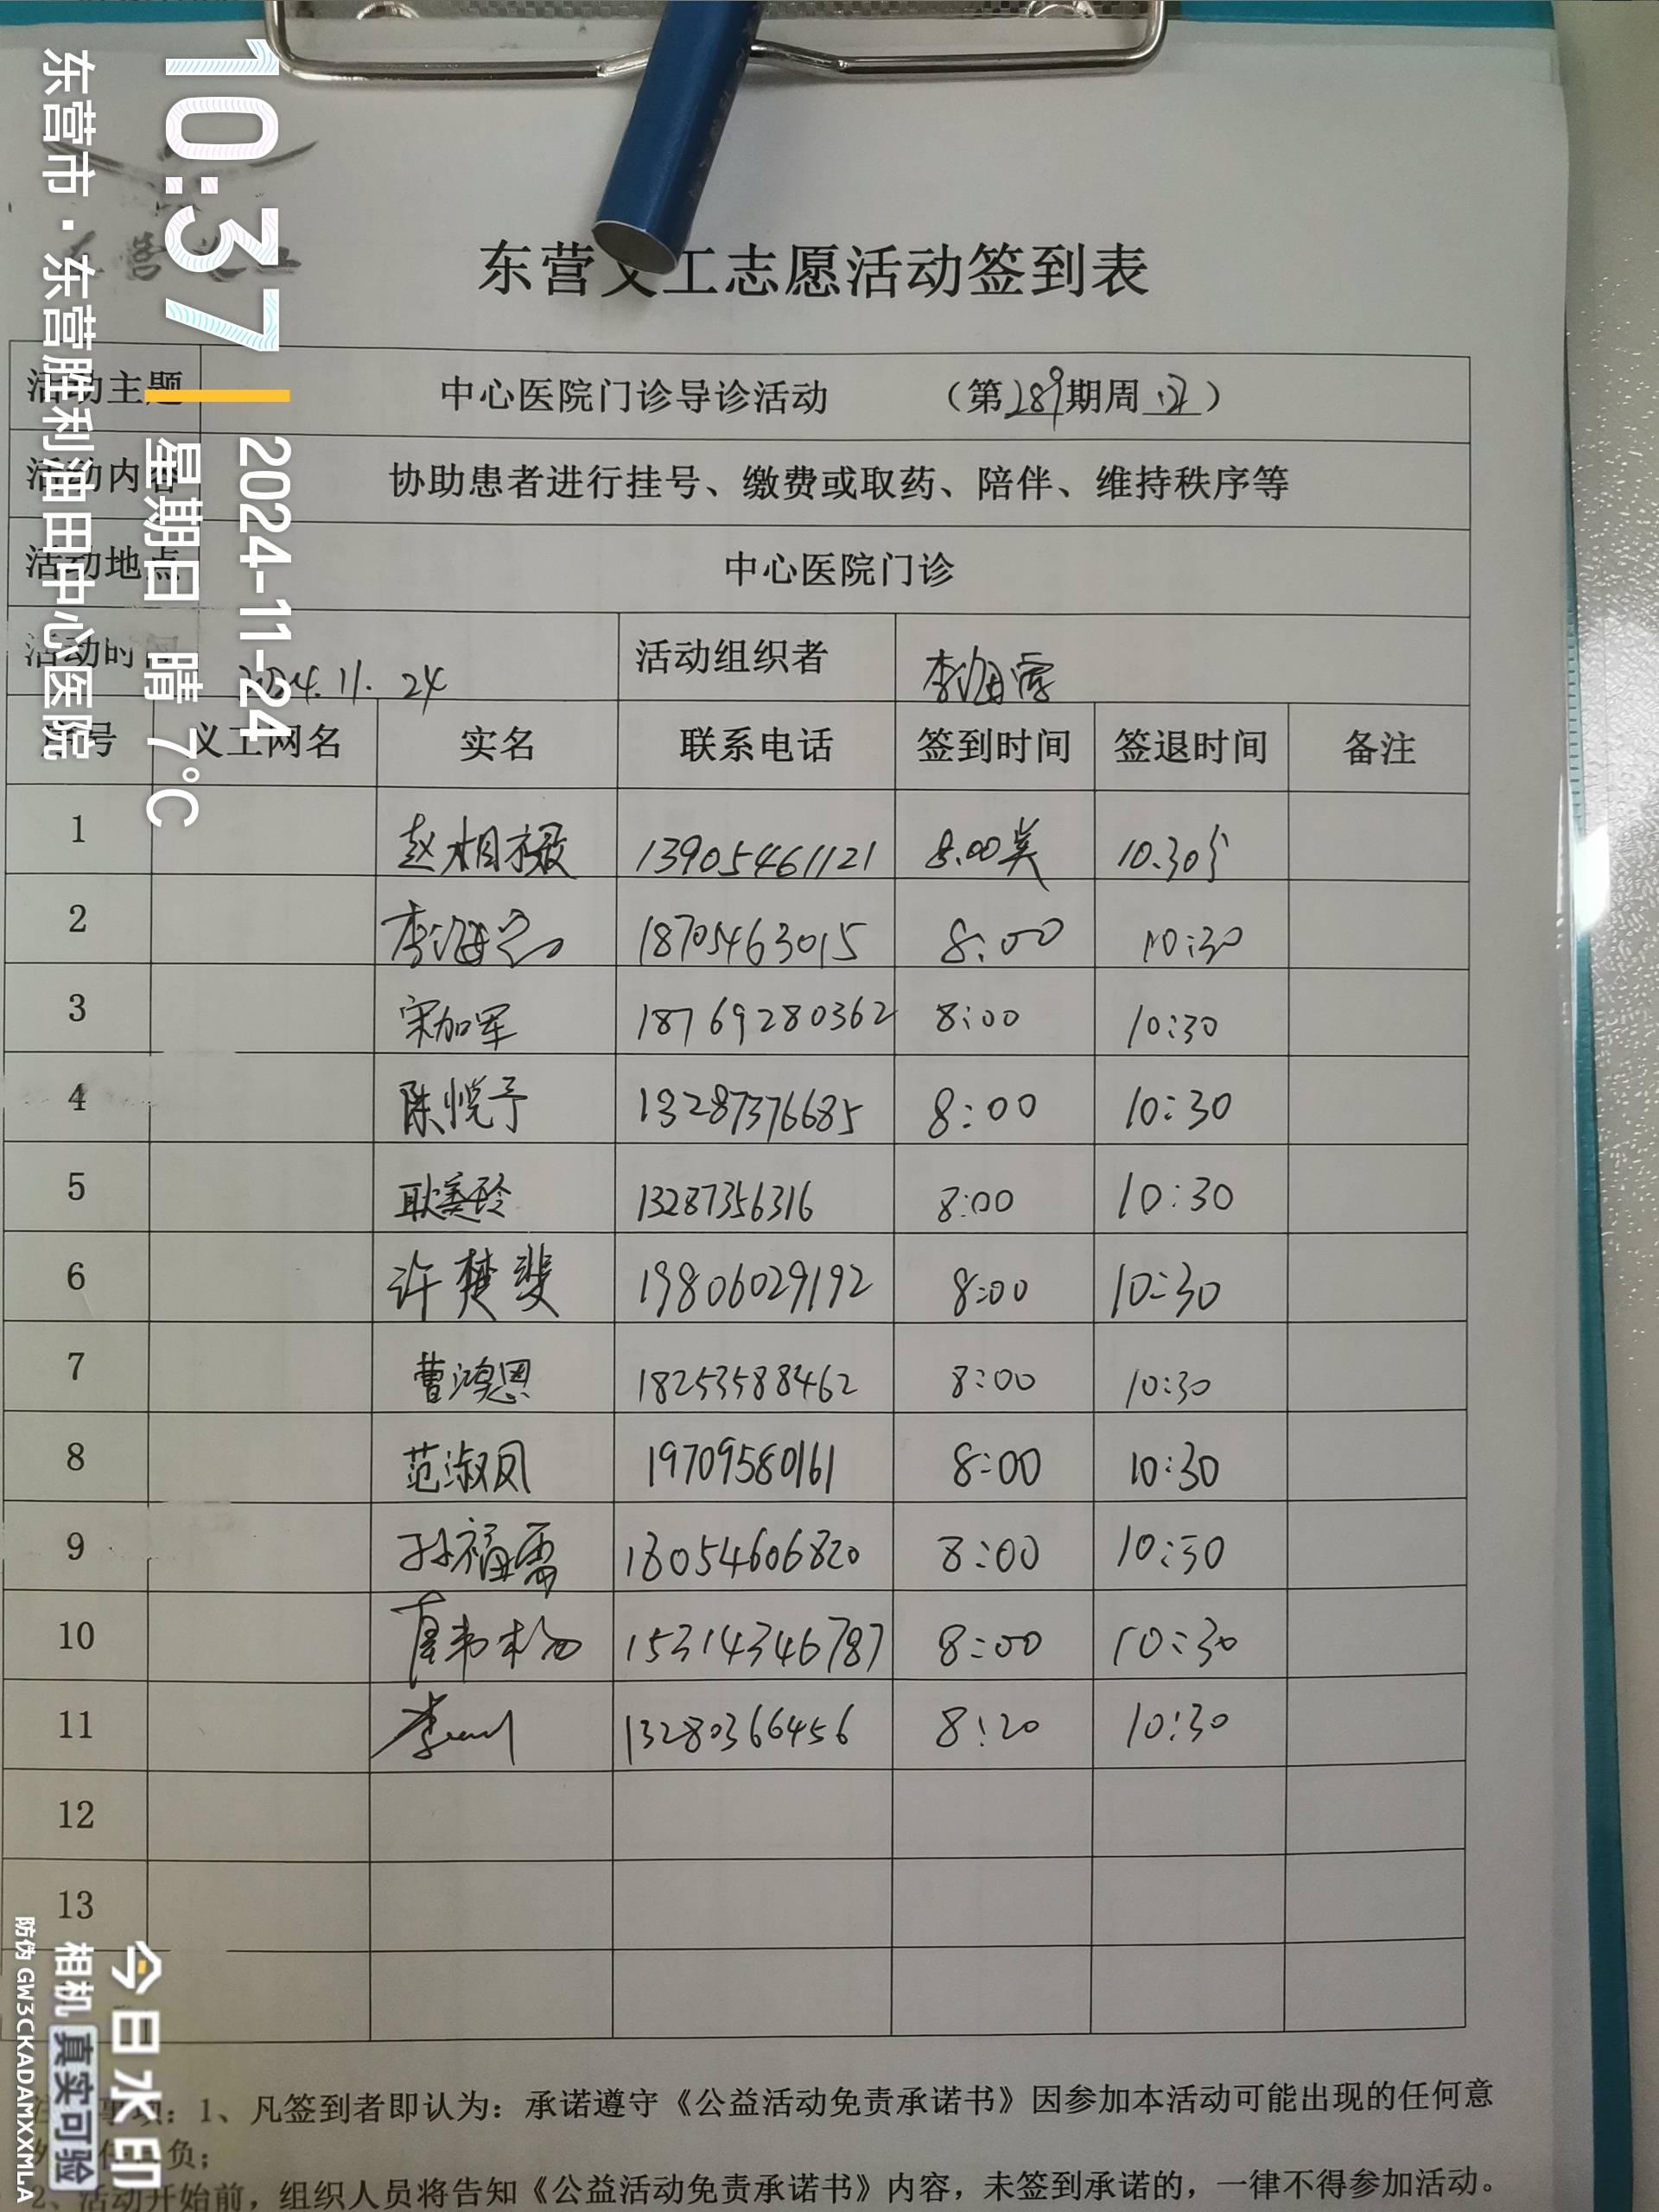 10:37
2024-11-24
星期日 晴 7°C
东营市·东营胜利油田中心医院
东营义工志愿活动签到表
活动主题 中心医院门诊导诊活动 （第289期周 ）
活动内容 协助患者进行挂号、缴费或取药、陪伴、维持秩序等
活动地点 中心医院门诊
活动时间 2024.11.24 活动组织者 李海霞
序号 义工网名 实名 联系电话 签到时间 签退时间 备注
1 赵相 13905461121 8:00 10.30
2 李海 18705463015 8:00 10:30
3 宋加军 18769280362 8:00 10:30
4 陈悦予 13287376685 8:00 10:30
5 耿美玲 13287356316 8:00 10:30
6 许楚斐 19806029192 8:00 10:30
7 曹鸿恩 18253588462 8:00 10:30
8 范淑凤 19709580161 8:00 10:30
9 孙福 18054606820 8:00 10:30
10 15314346787 8:00 10:30
11 李 13280366456 8:20 10:30
12
13
事项：1、凡签到者即认为：承诺遵守《公益活动免责承诺书》因参加本活动可能出现的任何意
负；
2、活动开始前，组织人员将告知《公益活动免责承诺书》内容，未签到承诺的，一律不得参加活动。
今日水印
相机 真实可验
防伪 GW3CKADAMXXMLA